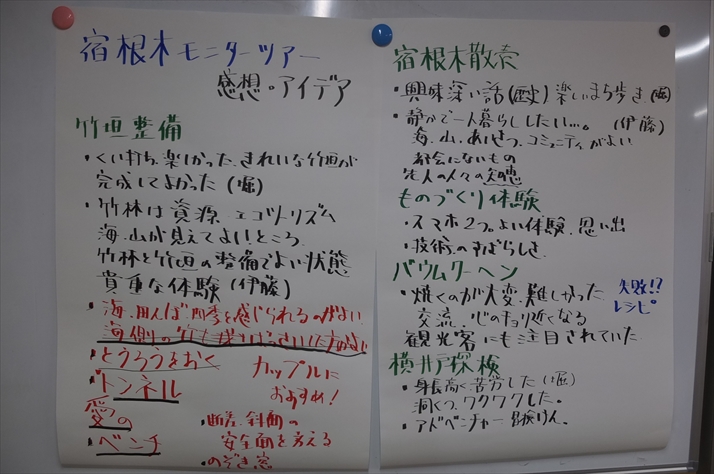 宿根木モニターツアー
感想。アイデア
竹垣整備
・くい打ち、楽しかった、きれいな竹垣が
完成してよかった(堀)
・竹林は資源、エコツーリズム
海、山が見えてよいところ
竹林と竹垣の整備でよい状態
貴重な体験(伊藤)
・海、田んぼ、四季を感じられるのがよい
海側の竹も
・とうろうをおく
カップルに
おすすめ!
・トンネル
愛の
・ベンチ
・段差、斜面の
安全面を考える
・のぞき窓
宿根木散売
・興味深い話(歴史)楽しいまち歩き(堀)
・静かで一人暮らししたい…。(伊藤)
海、山、あいさつ、コミュニティがよい
都会にないもの
先人の人々の知恵
ものづくり体験
・スマホ2つ。よい体験、思い出
・技術のすばらしさ
バウムクーヘン
・焼くのが大変、難しかった
失敗!?
レシピ
交流、心のキョリ近くなる
観光客にも注目されていた
横井戸探検
・身長高く苦労した(堀)
洞くつ、ワクワクした。
・アドベンチャー 冒険けん。